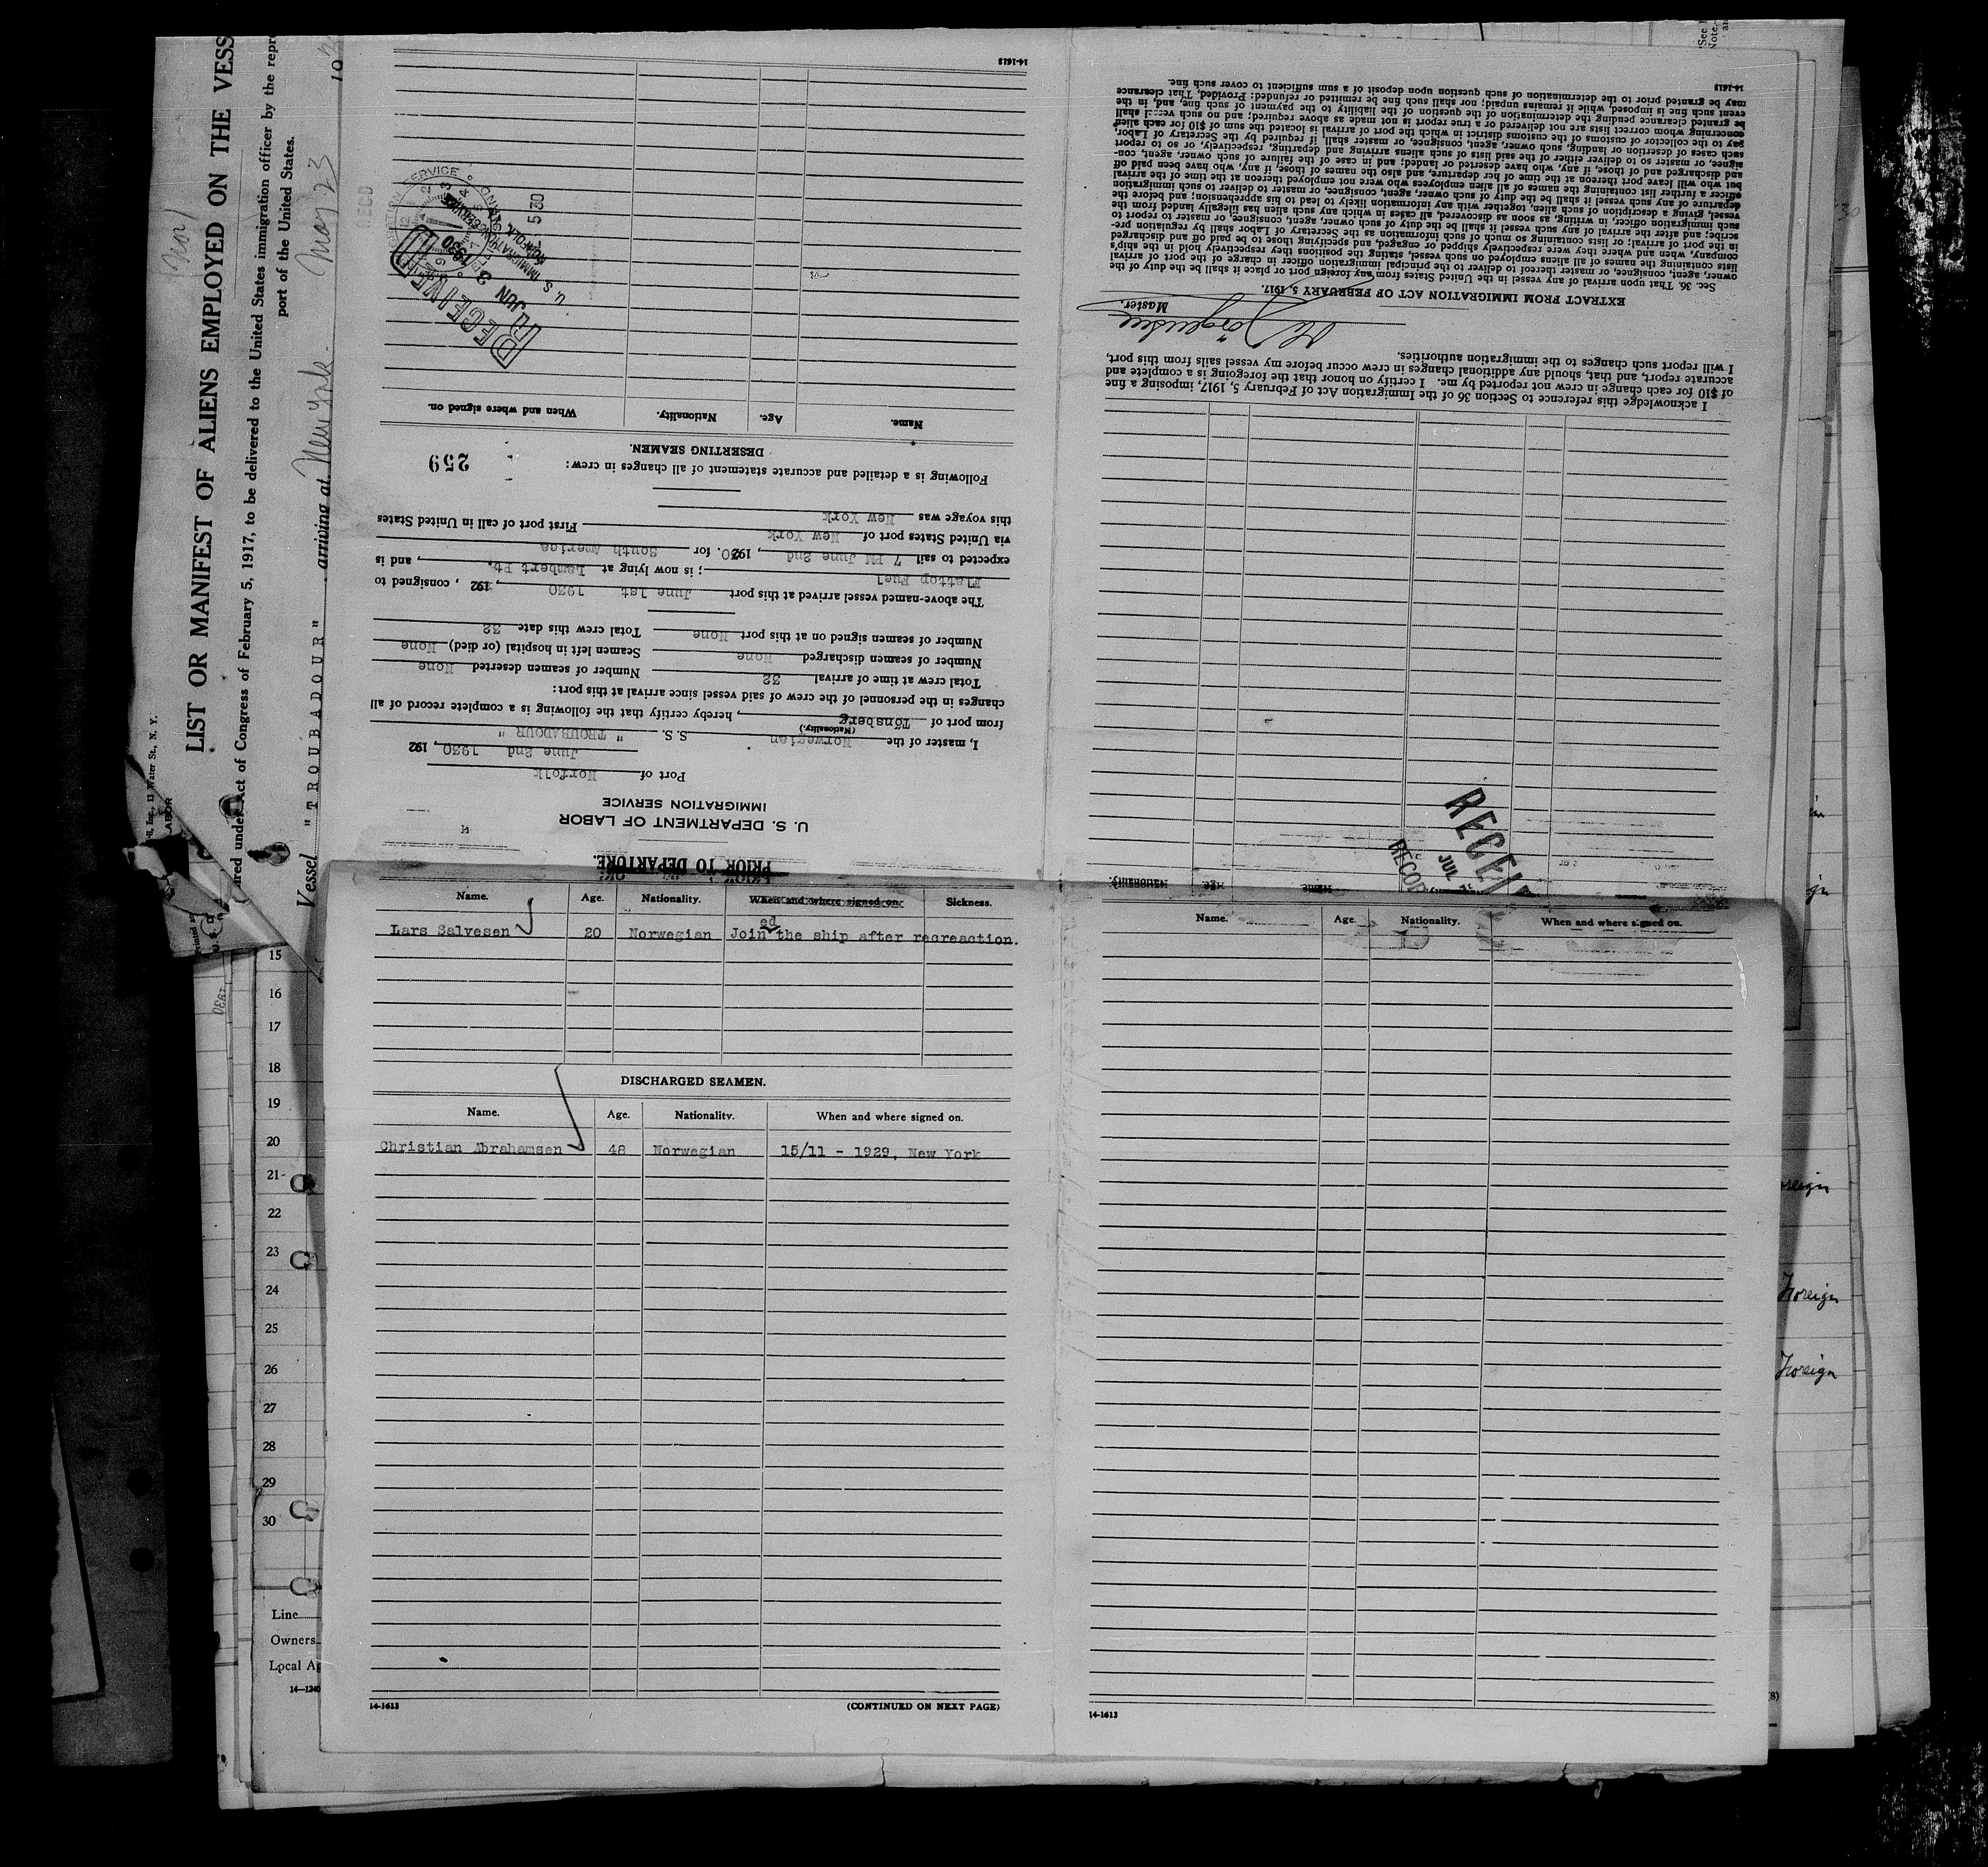 LIST OR MANIFEST OF ALIENS EMPLOYED ON THE VESS
Act of Congress of February 5, 1917, to be delivered to the United States immigration officer by the repre
port of the United States.
Vessel "TROUBADOUR" arriving at New York. May 23
PRIOR TO DEPARTURE
U. S. DEPARTMENT OF LABOR
IMMIGRATION SERVICE
Port of Norfolk
June 2nd 1930, 192
I, master of the Norwegian S.S. "TROUBADOUR"
(Nationality.)
from port of Tönsberg, hereby certify that the following is a complete record of all
changes in the personnel of the crew of said vessel since arrival at this port:
Total crew at time of arrival 32 Number of seamen deserted None
Number of seamen discharged None Seamen left in hospital (or died) None
Number of seamen signed on at this port None Total crew this date 32
The above-named vessel arrived at this port June 1st 1930, 192 , consigned to
Flattop Fuel; is now lying at Lambert Pt., and is
expected to sail 7 PM June 2nd, 1930. for South America
via United States port of New York First port of call in United States
this voyage was New York
Following is a detailed and accurate statement of all changes in crew:
259
DESERTING SEAMEN.
Name. Age. Nationality. When and where signed on.
RECEIVED
JUN 3 1930
U. S. IMMIGRATION SERVICE
14-1613
I acknowledge this reference to Section 36 of the Immigration Act of February 5, 1917, imposing a fine
of $10 for each change in crew not reported by me. I certify on honor that the foregoing is a complete and
accurate report, and that, should any additional changes in crew occur before my vessel sails from this port,
I will report such changes to the immigration authorities.
Jörgensen
Master.
EXTRACT FROM IMMIGRATION ACT OF FEBRUARY 5, 1917.
Sec. 36. That upon arrival of any vessel in the United States from any foreign port or place it shall be the duty of the
owner, agent, consignee, or master thereof to deliver to the principal immigration officer in charge of the port of arrival
lists containing the names of all aliens employed on such vessel, stating the positions they respectively hold in the ship's
company, when and where they were respectively shipped or engaged, and specifying those to be paid off and discharged
in the port of arrival; or lists containing so much of such information as the Secretary of Labor shall by regulation pre-
scribe; and after the arrival of any such vessel it shall be the duty of such owner, agent, consignee, or master to report to
such immigration officer, in writing, as soon as discovered, all cases in which any such alien has illegally landed from the
vessel, giving a description of such alien, together with any information likely to lead to his apprehension; and before the
departure of any such vessel it shall be the duty of such owner, agent, consignee, or master to deliver to such immigration
officer a further list containing the names of all alien employees who were not employed thereon at the time of the arrival
but who will leave port thereon at the time of her departure, and also the names of those, if any, who have been paid off
and discharged and of those, if any, who have deserted or landed; and in case of the failure of such owner, agent, con-
signee, or master so to deliver either of the said lists of such aliens arriving and departing, respectively, or so to report
such cases of desertion or landing, such owner, agent, consignee, or master shall if required by the Secretary of Labor,
pay to the collector of customs of the customs district in which the port of arrival is located the sum of $10 for each alien
concerning whom correct lists are not delivered or a true report is not made as above required; and no such vessel shall
be granted clearance pending the determination of the question of the liability to the payment of such fine, and, in the
event such fine is imposed, while it remains unpaid; nor shall such fine be remitted or refunded: Provided, That clearance
may be granted prior to the determination of such question upon deposit of a sum sufficient to cover such fine.
14-1613
Name. Age. Nationality. When and where signed on. Sickness.
Lars Salvesen 20 Norwegian Joined the ship after recreaction.
DISCHARGED SEAMEN.
Name. Age. Nationality. When and where signed on.
Christian Abrahamsen 48 Norwegian 15/11 - 1929, New York
14-1613 (CONTINUED ON NEXT PAGE)
Name. Age. Nationality. When and where signed on.
14-1613
15
16
17
18
19
20
21
22
23
24
25
26
27
28
29
30
Line
Owners
Local Ag
14-1240
Foreign
Foreign